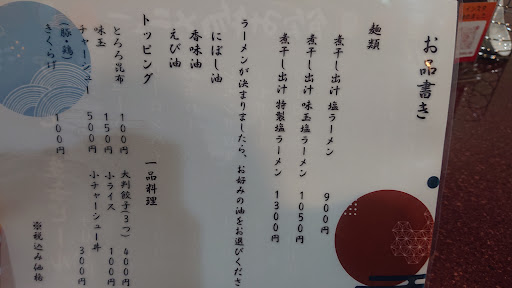 お品書き
麺類
煮干し出汁 塩ラーメン 900円
煮干し出汁 味玉塩ラーメン 1050円
煮干し出汁 特製塩ラーメン 1300円
ラーメンが決まりましたら、お好みの油をお選びくださ
にぼし油
香味油
えび油
トッピング
とろろ昆布 100円
味玉 150円
チャーシュー 500円
(豚・鶏)
きくらげ 100円
一品料理
大判餃子(3つ) 400円
小ライス 100円
小チャーシュー丼 300円
※税込み価格